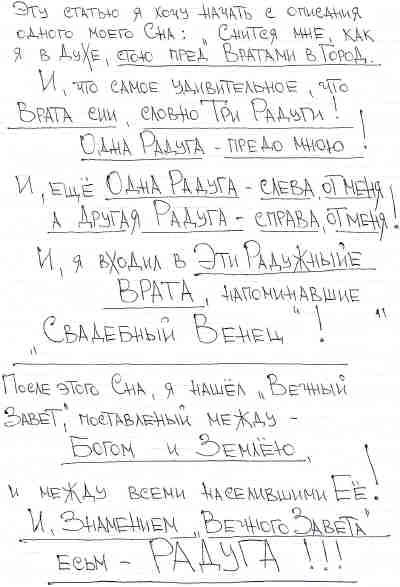 Эту статью я хочу начать с описания
одного моего Сна: „Снится мне, как
я в Духе, стою пред Вратами в Город.
И, что самое удивительное, что
Врата сии, словно Три Радуги!
Одна Радуга - предо мною!
И, ещё Одна Радуга - слева, от меня
а другая Радуга - справа, от меня!
И, я входил в Эти Радужныйе
Врата, напоминавшие
„Свадебный Венец"! "
После этого Сна, я нашёл „Вечный
Завет", поставленый между -
Богом и Землёю,
и между всеми населившими Её!
И, Знамением „Вечного Завета"
есьм - РАДУГА!!!